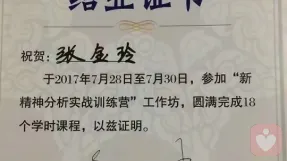 结业证书
祝贺：张金玲
于2017年7月28日至7月30日，参加“新
精神分析实战训练营”工作坊，圆满完成18
个学时课程，以兹证明。